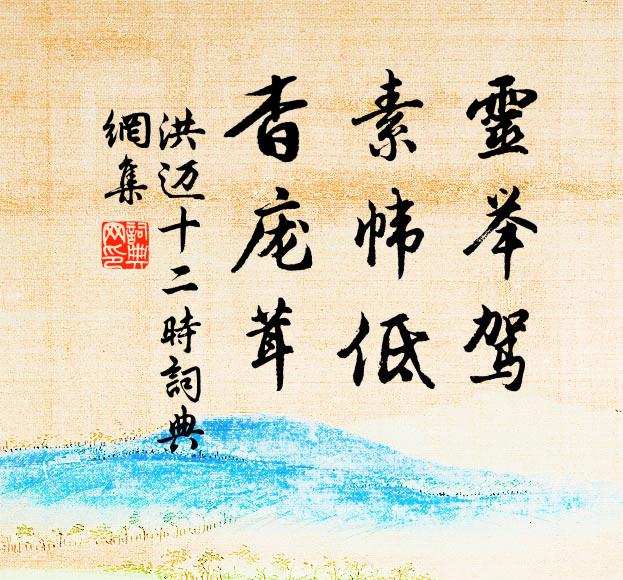 靈举驾
素帏低
杳庞茸
洪迈十二時詞典
網集
詞典
网印